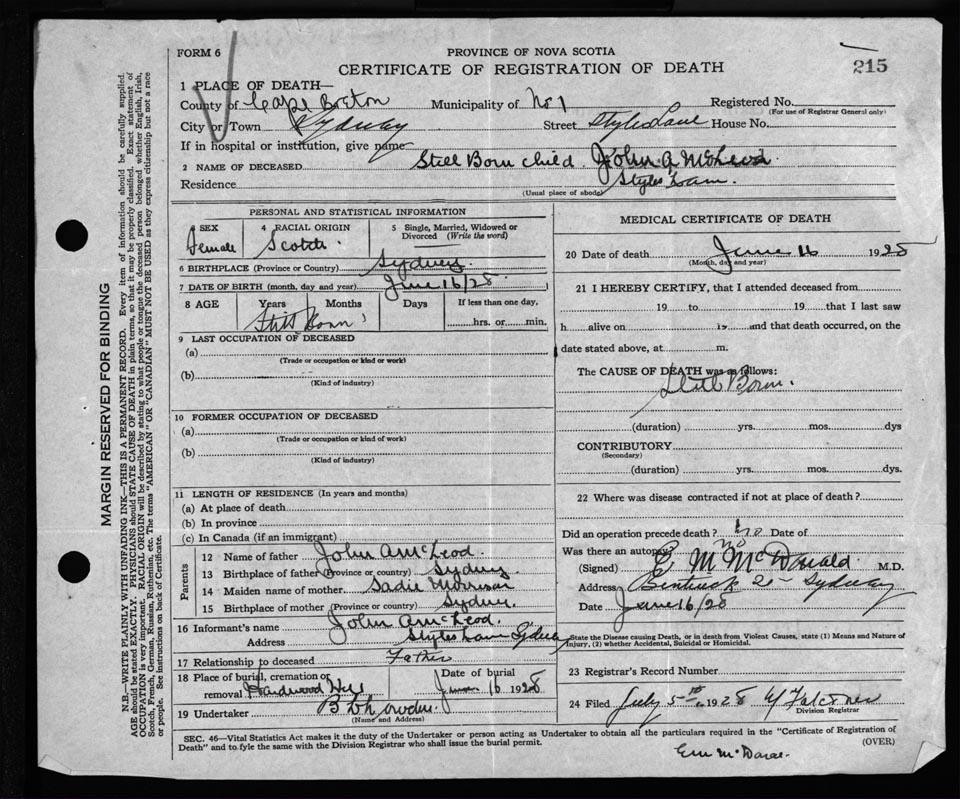 FORM 6
PROVINCE OF NOVA SCOTIA
CERTIFICATE OF REGISTRATION OF DEATH
215
1 PLACE OF DEATH—
County of Cape Breton Municipality of No 1 Registered No.
(For use of Registrar General only)
City or Town Sydney Street Styles Lane House No.
If in hospital or institution, give name
2 NAME OF DECEASED Still Born child John A McLeod
Residence Styles Lane.
(Usual place of abode)
PERSONAL AND STATISTICAL INFORMATION
SEX 4 RACIAL ORIGIN 5 Single, Married, Widowed or
Divorced (Write the word)
Female Scotch
6 BIRTHPLACE (Province or Country) Sydney
7 DATE OF BIRTH (month, day and year) June 16/28
8 AGE Years Months Days If less than one day,
Still Born hrs. or min.
9 LAST OCCUPATION OF DECEASED
(a)
(Trade or occupation or kind or work)
(b)
(Kind of industry)
10 FORMER OCCUPATION OF DECEASED
(a)
(Trade or occupation or kind of work)
(b)
(Kind of industry)
11 LENGTH OF RESIDENCE (In years and months)
(a) At place of death
(b) In province
(c) In Canada (if an immigrant)
Parents
12 Name of father John A McLeod.
13 Birthplace of father (Province or country) Sydney
14 Maiden name of mother Sadie Morrison
15 Birthplace of mother (Province or country) Sydney.
16 Informant's name John A McLeod.
Address Styles Lane Sydney
17 Relationship to deceased Father
18 Place of burial, cremation or Date of burial
removal Hardwood Hill June 16 1928
19 Undertaker
(Name and Address)
MEDICAL CERTIFICATE OF DEATH
20 Date of death June 16 1928
(Month, day and year)
21 I HEREBY CERTIFY, that I attended deceased from
19 to 19 that I last saw
h alive on 19 and that death occurred, on the
date stated above, at m.
The CAUSE OF DEATH was as follows:
Still Born.
(duration) yrs. mos. dys
CONTRIBUTORY
(Secondary)
(duration) yrs. mos. dys.
22 Where was disease contracted if not at place of death?
Did an operation precede death? no Date of
Was there an autopsy no
(Signed) E M McDonald M.D.
Address Sydney
Date June 16/28
State the Disease causing Death, or in death from Violent Causes, state (1) Means and Nature of
Injury, (2) whether Accidental, Suicidal or Homicidal.
23 Registrar's Record Number
24 Filed July 5th 1928 Falconer
Division Registrar
SEC. 46—Vital Statistics Act makes it duty of the Undertaker or person acting as Undertaker to obtain all the particulars required in the "Certificate of Registration of
Death" and to fyle the same with the Division Registrar who shall issue the burial permit.
(OVER)
MARGIN RESERVED FOR BINDING
N.B.—WRITE PLAINLY WITH UNFADING INK—THIS IS A PERMANENT RECORD. Every item of information should be carefully supplied.
AGE should be stated EXACTLY. PHYSICIANS should STATE CAUSE OF DEATH in plain terms, so that it may be properly classified. Exact statement of
OCCUPATION is very important. RACIAL ORIGIN will be described by stating to what people or tongue the deceased person belonged whether English, Irish,
Scotch, French, German, Russian, Ruthenian, etc. The terms "AMERICAN" OR "CANADIAN" MUST NOT BE USED as they express citizenship but not a race
or people. See instructions on back of Certificate.